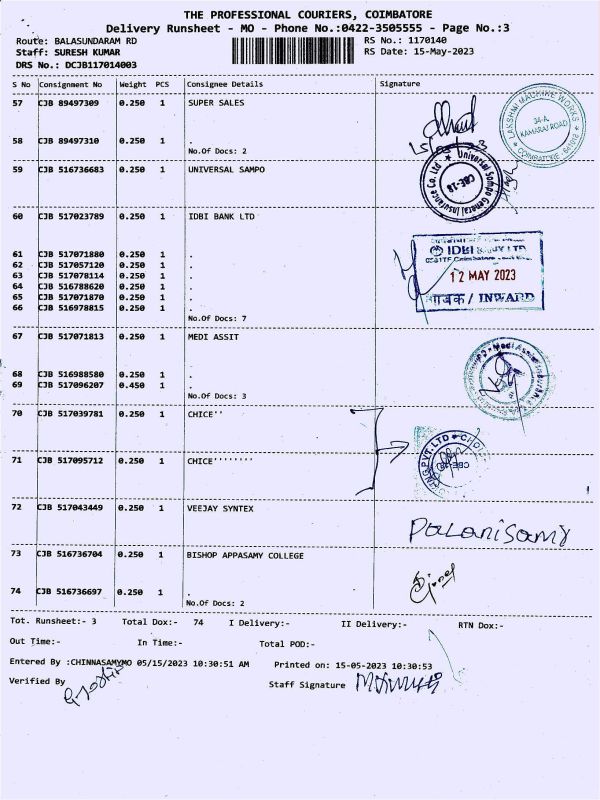 THE PROFESSIONAL COURIERS, COIMBATORE
Delivery Runsheet - MO - Phone No.:0422-3505555 - Page No.:3
Route: BALASUNDARAM RD
RS No.: 1170140
Staff: SURESH KUMAR
RS Date: 15-May-2023
DRS No.: DCJB117014003
S No Consignment No Weight PCS Consignee Details Signature
57 CJB 89497309 0.250 1 SUPER SALES
LAKSHMI MACHINE WORKS
34-A,
KAMARAJ ROAD
COIMBATORE
58 CJB 89497310 0.250 1 .
No.Of Docs: 2
59 CJB 516736683 0.250 1 UNIVERSAL SAMPO
Universal Sompo General Insurance Co. Ltd
CBE-18
60 CJB 517023789 0.250 1 IDBI BANK LTD
IDBI BANK LTD
12 MAY 2023
आवक / INWARD
61 CJB 517071880 0.250 1 .
62 CJB 517057120 0.250 1 .
63 CJB 517078114 0.250 1 .
64 CJB 516788620 0.250 1 .
65 CJB 517071870 0.250 1 .
66 CJB 516978815 0.250 1 .
No.Of Docs: 7
67 CJB 517071813 0.250 1 MEDI ASSIT
68 CJB 516988580 0.250 1 .
69 CJB 517096207 0.450 1 .
No.Of Docs: 3
70 CJB 517039781 0.250 1 CHICE''
71 CJB 517095712 0.250 1 CHICE''''''''
PVT. LTD
CBE-18
72 CJB 517043449 0.250 1 VEEJAY SYNTEX
Palanisamy
73 CJB 516736704 0.250 1 BISHOP APPASAMY COLLEGE
74 CJB 516736697 0.250 1 .
No.Of Docs: 2
Tot. Runsheet:- 3 Total Dox:- 74 I Delivery:- II Delivery:- RTN Dox:-
Out Time:- In Time:- Total POD:-
Entered By :CHINNASAMYMO 05/15/2023 10:30:51 AM Printed on: 15-05-2023 10:30:53
Verified By
Staff Signature